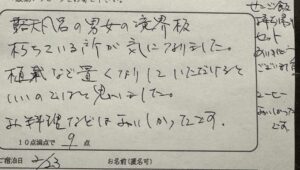 露天風呂の男女の境界板
朽ちている所が気になりました。
植栽など置くなりしていただけると
いいのではと思いました。
お料理などはおいしかったです。
10点満点で 9 点
ご宿泊日 2/23 お名前(匿名可)
セット
コーヒー
おいしかった
です